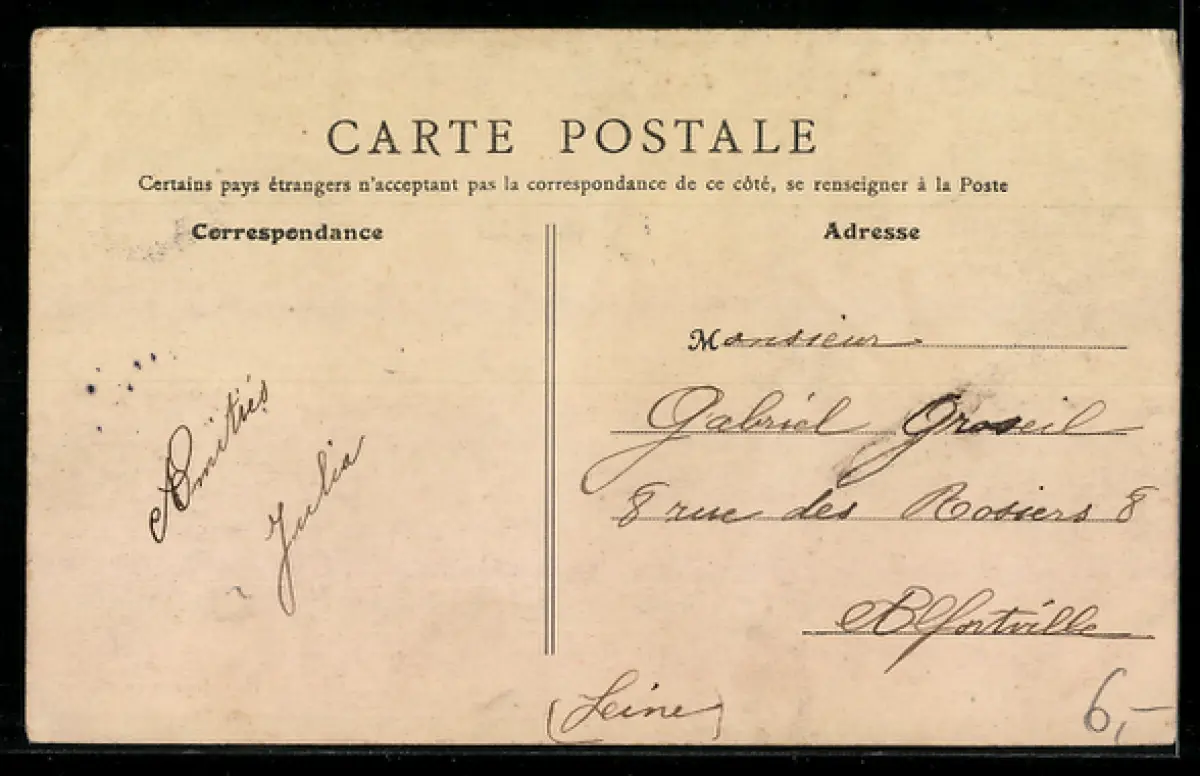 CARTE POSTALE
Certains pays étrangers n'acceptant pas la correspondance de ce côté, se renseigner à la Poste
Correspondance
Adresse
Amitiés
Julia
Monsieur
Gabriel Groseil
8 rue des Rosiers 8
Alfortville
(Seine)
6,-